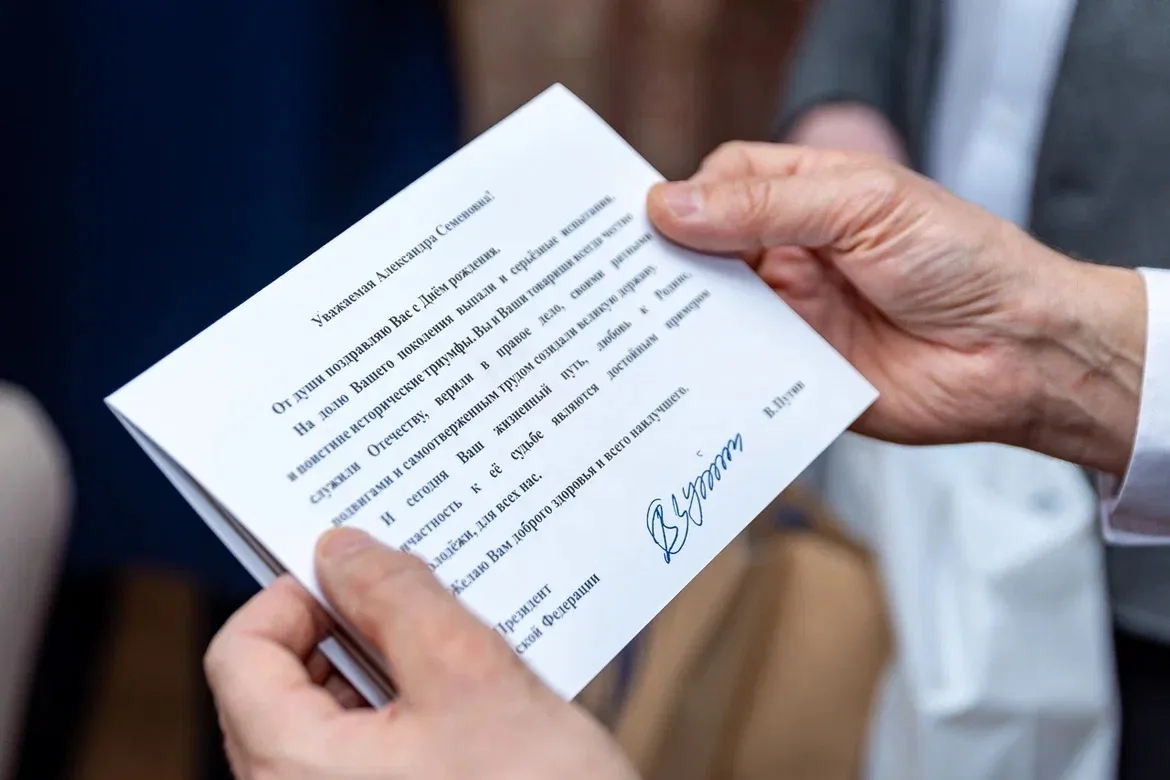 Уважаемая Александра Семеновна!
От души поздравляю Вас с Днём рождения.
На долю Вашего поколения выпали и серьёзные испытания,
и поистине исторические триумфы. Вы и Ваши товарищи всегда честно
служили Отечеству, верили в правое дело, своими ратными
подвигами и самоотверженным трудом созидали великую державу.
И сегодня Ваш жизненный путь, любовь к Родине,
ичастность к её судьбе являются достойным примером
олодёжи, для всех нас.
Желаю Вам доброго здоровья и всего наилучшего.
Президент
ской Федерации
В.Путин